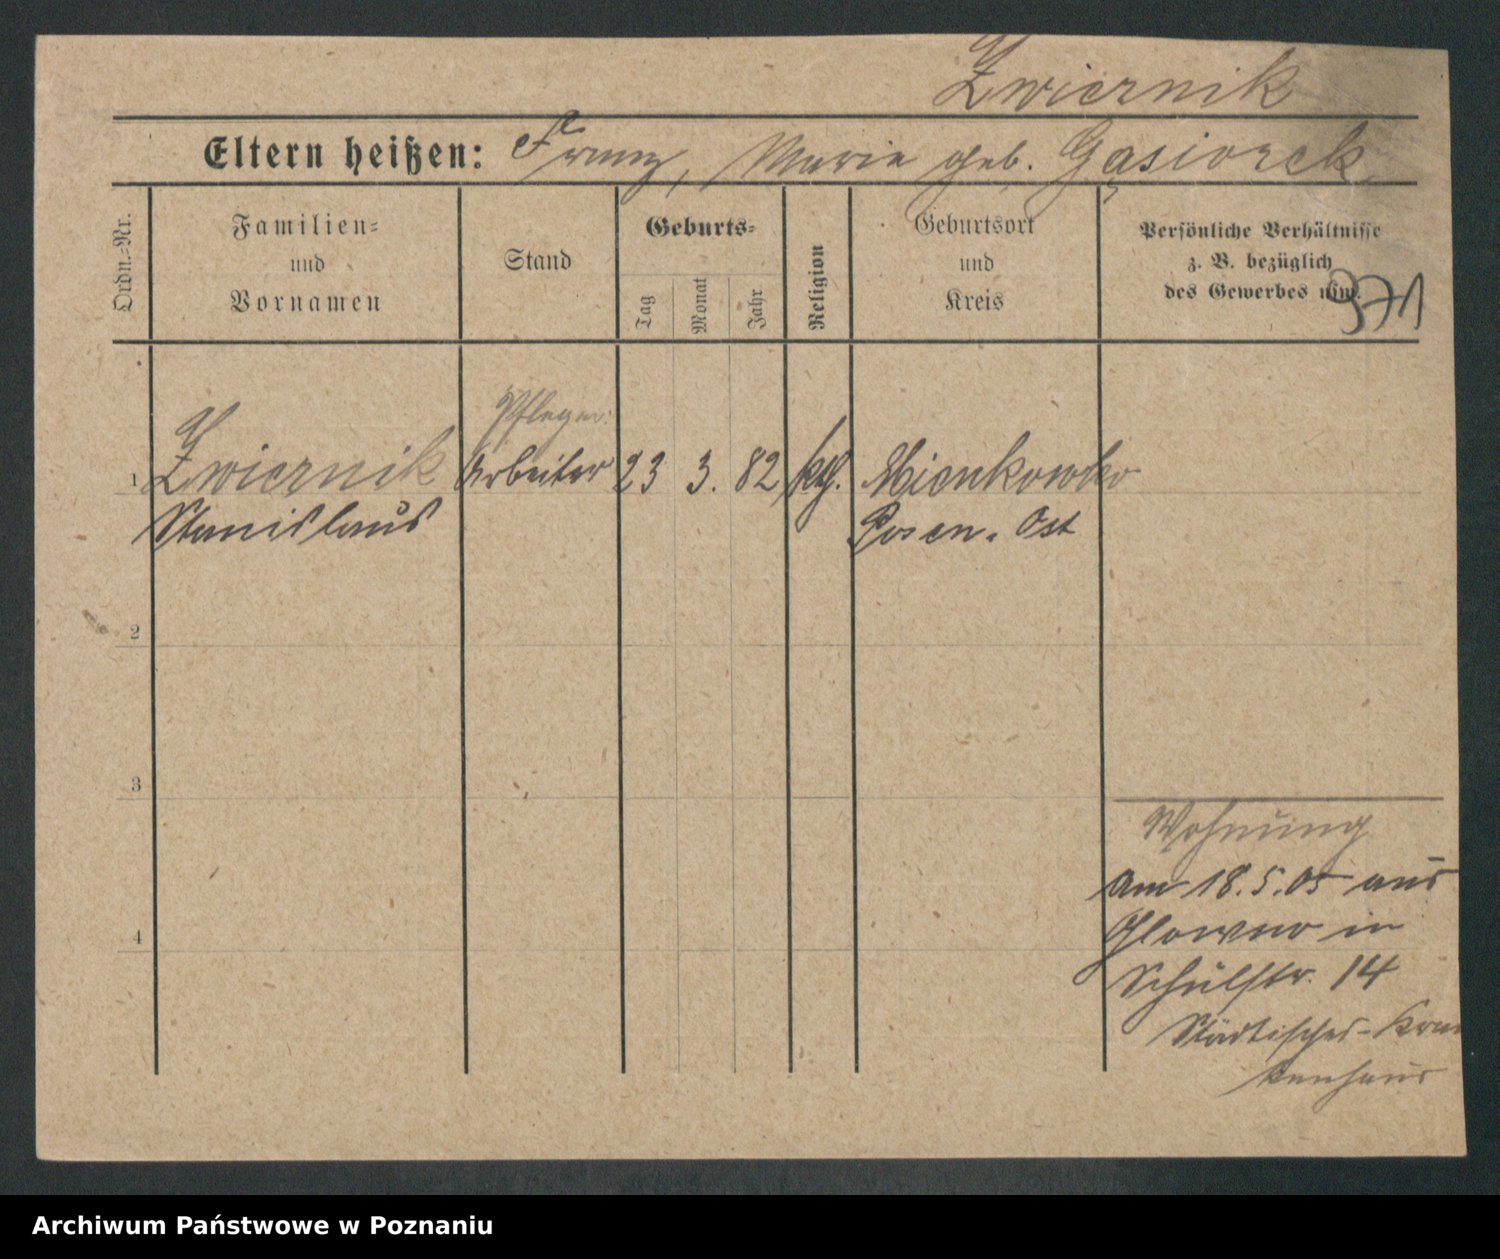 Zwiernik
Eltern heißen: Franz, Marie geb. Gąsiorek
Ordn.-Nr.
Familien-
und
Vornamen
Stand
Geburts-
Tag
Monat
Jahr
Religion
Geburtsort
und
Kreis
Persönliche Verhältnisse
z. B. bezüglich
des Gewerbes usw.
371
Pfleger
1 Zwiernik Arbeiter 23 3. 82 kth. Mienkowko
Stanislaus Posen-Ost
2
3
Wohnung
am 18.5.05 aus
Glowno in
4
Schulstr. 14
Städtisches-Kran
kenhaus
Archiwum Państwowe w Poznaniu